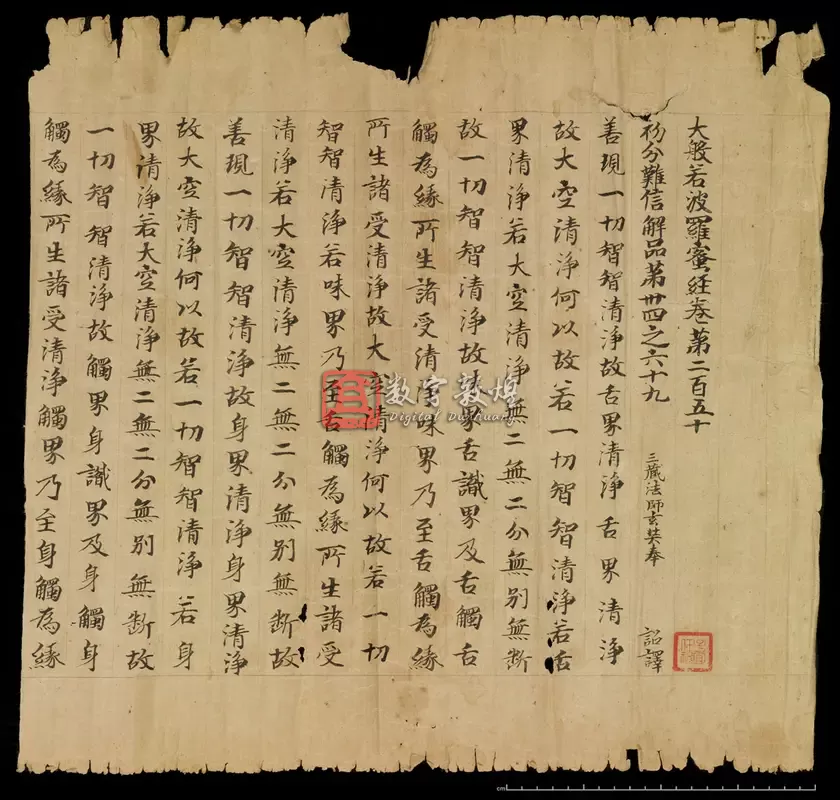 大般若波羅蜜経卷第二百五十
初分難信解品第卅四之六十九 三藏法師玄奘奉 詔譯
善現一切智智清淨故舌界清淨舌界清淨
故大空清淨何以故若一切智智清淨若舌
界清淨若大空清淨無二無二分無別無斷
故一切智智清淨故味界舌識界及舌觸舌
觸為緣所生諸受清淨味界乃至舌觸為緣
所生諸受清淨故大空清淨何以故若一切
智智清淨若味界乃至舌觸為緣所生諸受
清淨若大空清淨無二無二分無別無斷故
善現一切智智清淨故身界清淨身界清淨
故大空清淨何以故若一切智智清淨若身
界清淨若大空清淨無二無二分無別無斷故
一切智智清淨故觸界身識界及身觸身
觸為緣所生諸受清淨觸界乃至身觸為緣
数字敦煌
Digital Dunhuang
cm